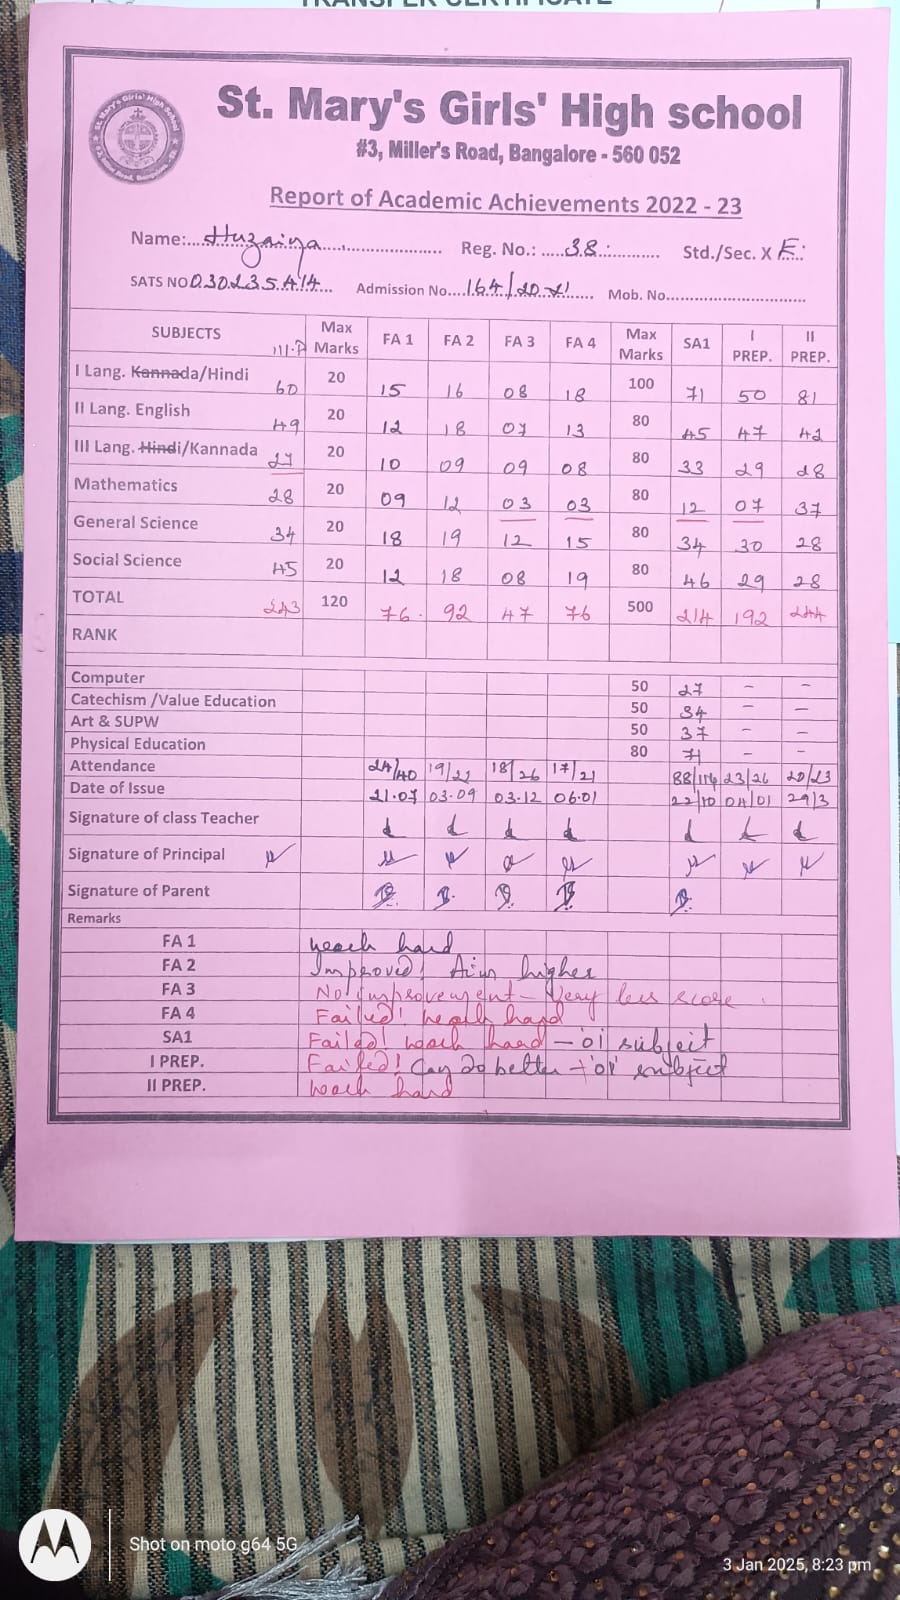 TRANSFER CERTIFICATE
St. Mary's Girls' High school
#3, Miller's Road, Bangalore - 560 052
Report of Academic Achievements 2022 - 23
Name: Huzaiya Reg. No.: 38 Std./Sec. X E
SATS NO 030235414 Admission No. 164/20-21 Mob. No.
SUBJECTS III.P Max Marks FA 1 FA 2 FA 3 FA 4 Max Marks SA1 I PREP. II PREP.
I Lang. Kannada/Hindi 60 20 15 16 08 18 100 71 50 81
II Lang. English 49 20 12 18 07 13 80 45 47 42
III Lang. Hindi/Kannada 27 20 10 09 09 08 80 33 29 28
Mathematics 28 20 09 12 03 03 80 12 07 37
General Science 34 20 18 19 12 15 80 34 30 28
Social Science 45 20 12 18 08 19 80 46 29 28
TOTAL 243 120 76 92 47 76 500 214 192 244
RANK
Computer 50 27 - -
Catechism /Value Education 50 34 - -
Art & SUPW 50 37 - -
Physical Education 80 71 - -
Attendance 24/40 19/22 18/26 17/21 88/116 23/26 20/23
Date of Issue 21.07 03-09 03.12 06.01 22/10 04/01 29/3
Signature of class Teacher
Signature of Principal
Signature of Parent
Remarks
FA 1 work hard
FA 2 Improved! Aim higher
FA 3 No improvement - Very less score.
FA 4 Failed! work hard
SA1 Failed! work hard - '01' subject
I PREP. Failed! Can do better - '01' subject
II PREP. work hard
Shot on moto g64 5G
3 Jan 2025, 8:23 pm